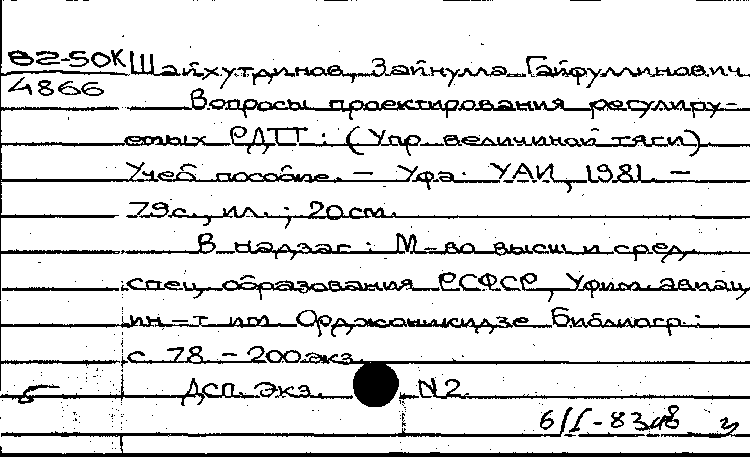 82-50К Шайхутдинов, Зайнулла Гайфуллинович
4866
Вопросы проектирования регулиру-
емых РДТТ : (Упр. величиной тяги)
Учеб. пособие. - Уфа: УАИ, 1981. -
79 с., ил. ; 20 см.
В надзаг : М-во высш и сред.
спец. образования РСФСР, Уфим. авиац.
ин-т им. Орджоникидзе Библиогр.:
с. 78 - 200 экз.
5 Дсп. Экз. N 2
6/I-83